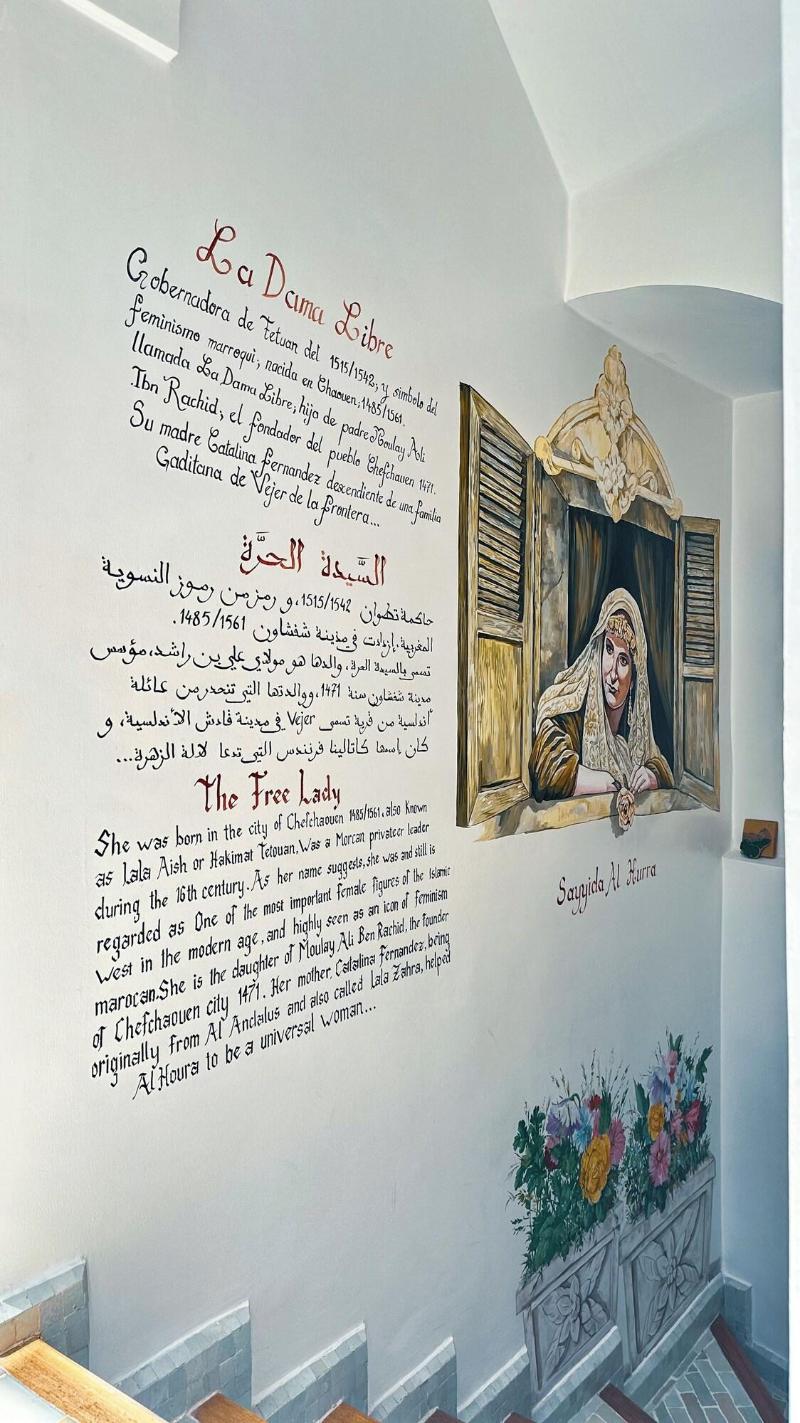 La Dama Libre
Gobernadora de Tetuan del 1515/1542, y simbolo del
feminismo marroqui, nacida en Chaouen, 1485/1561.
llamada La Dama Libre, hija de padre Moulay Ali
Ibn Rachid, el fondador del pueblo Chefchauen 1471.
Su madre Catalina Fernandez descendiente de una familia
Gaditana de Vejer de la Frontera...
السَّيدة الحرَّة
حاكمة تطوان 1515/1542، و رمز من رموز النسوية
المغربية، إزدادت في مدينة شفشاون 1485/1561.
تسمى بالسيدة الحرة، والدها هو مولاي علي بن راشد، مؤسس
مدينة شفشاون سنة 1471، ووالدتها التي تنحدر من عائلة
أندلسية من قرية تسمى Vejer في مدينة قادش الأندلسية، و
كان إسمها كاتالينا فرنندس التي تدعا لالة الزهرة...
The Free Lady
She was born in the city of Chefchaouen 1485/1561, also Known
as Lala Aish or Hakimat Tetouan, Was a Morcan privateer leader
during the 16th century. As her name suggests, she was and still is
regarded as One of the most important female figures of the Islamic
West in the modern age, and highly seen as an icon of feminism
marocan. She is the daughter of Moulay Ali Ben Rachid, the founder
of Chefchaouen city 1471. Her mother, Catalina Fernandez, being
originally from Al Andalus and also called Lala Zahra, helped
Al Houra to be a universal woman...
Sayyida Al Hurra